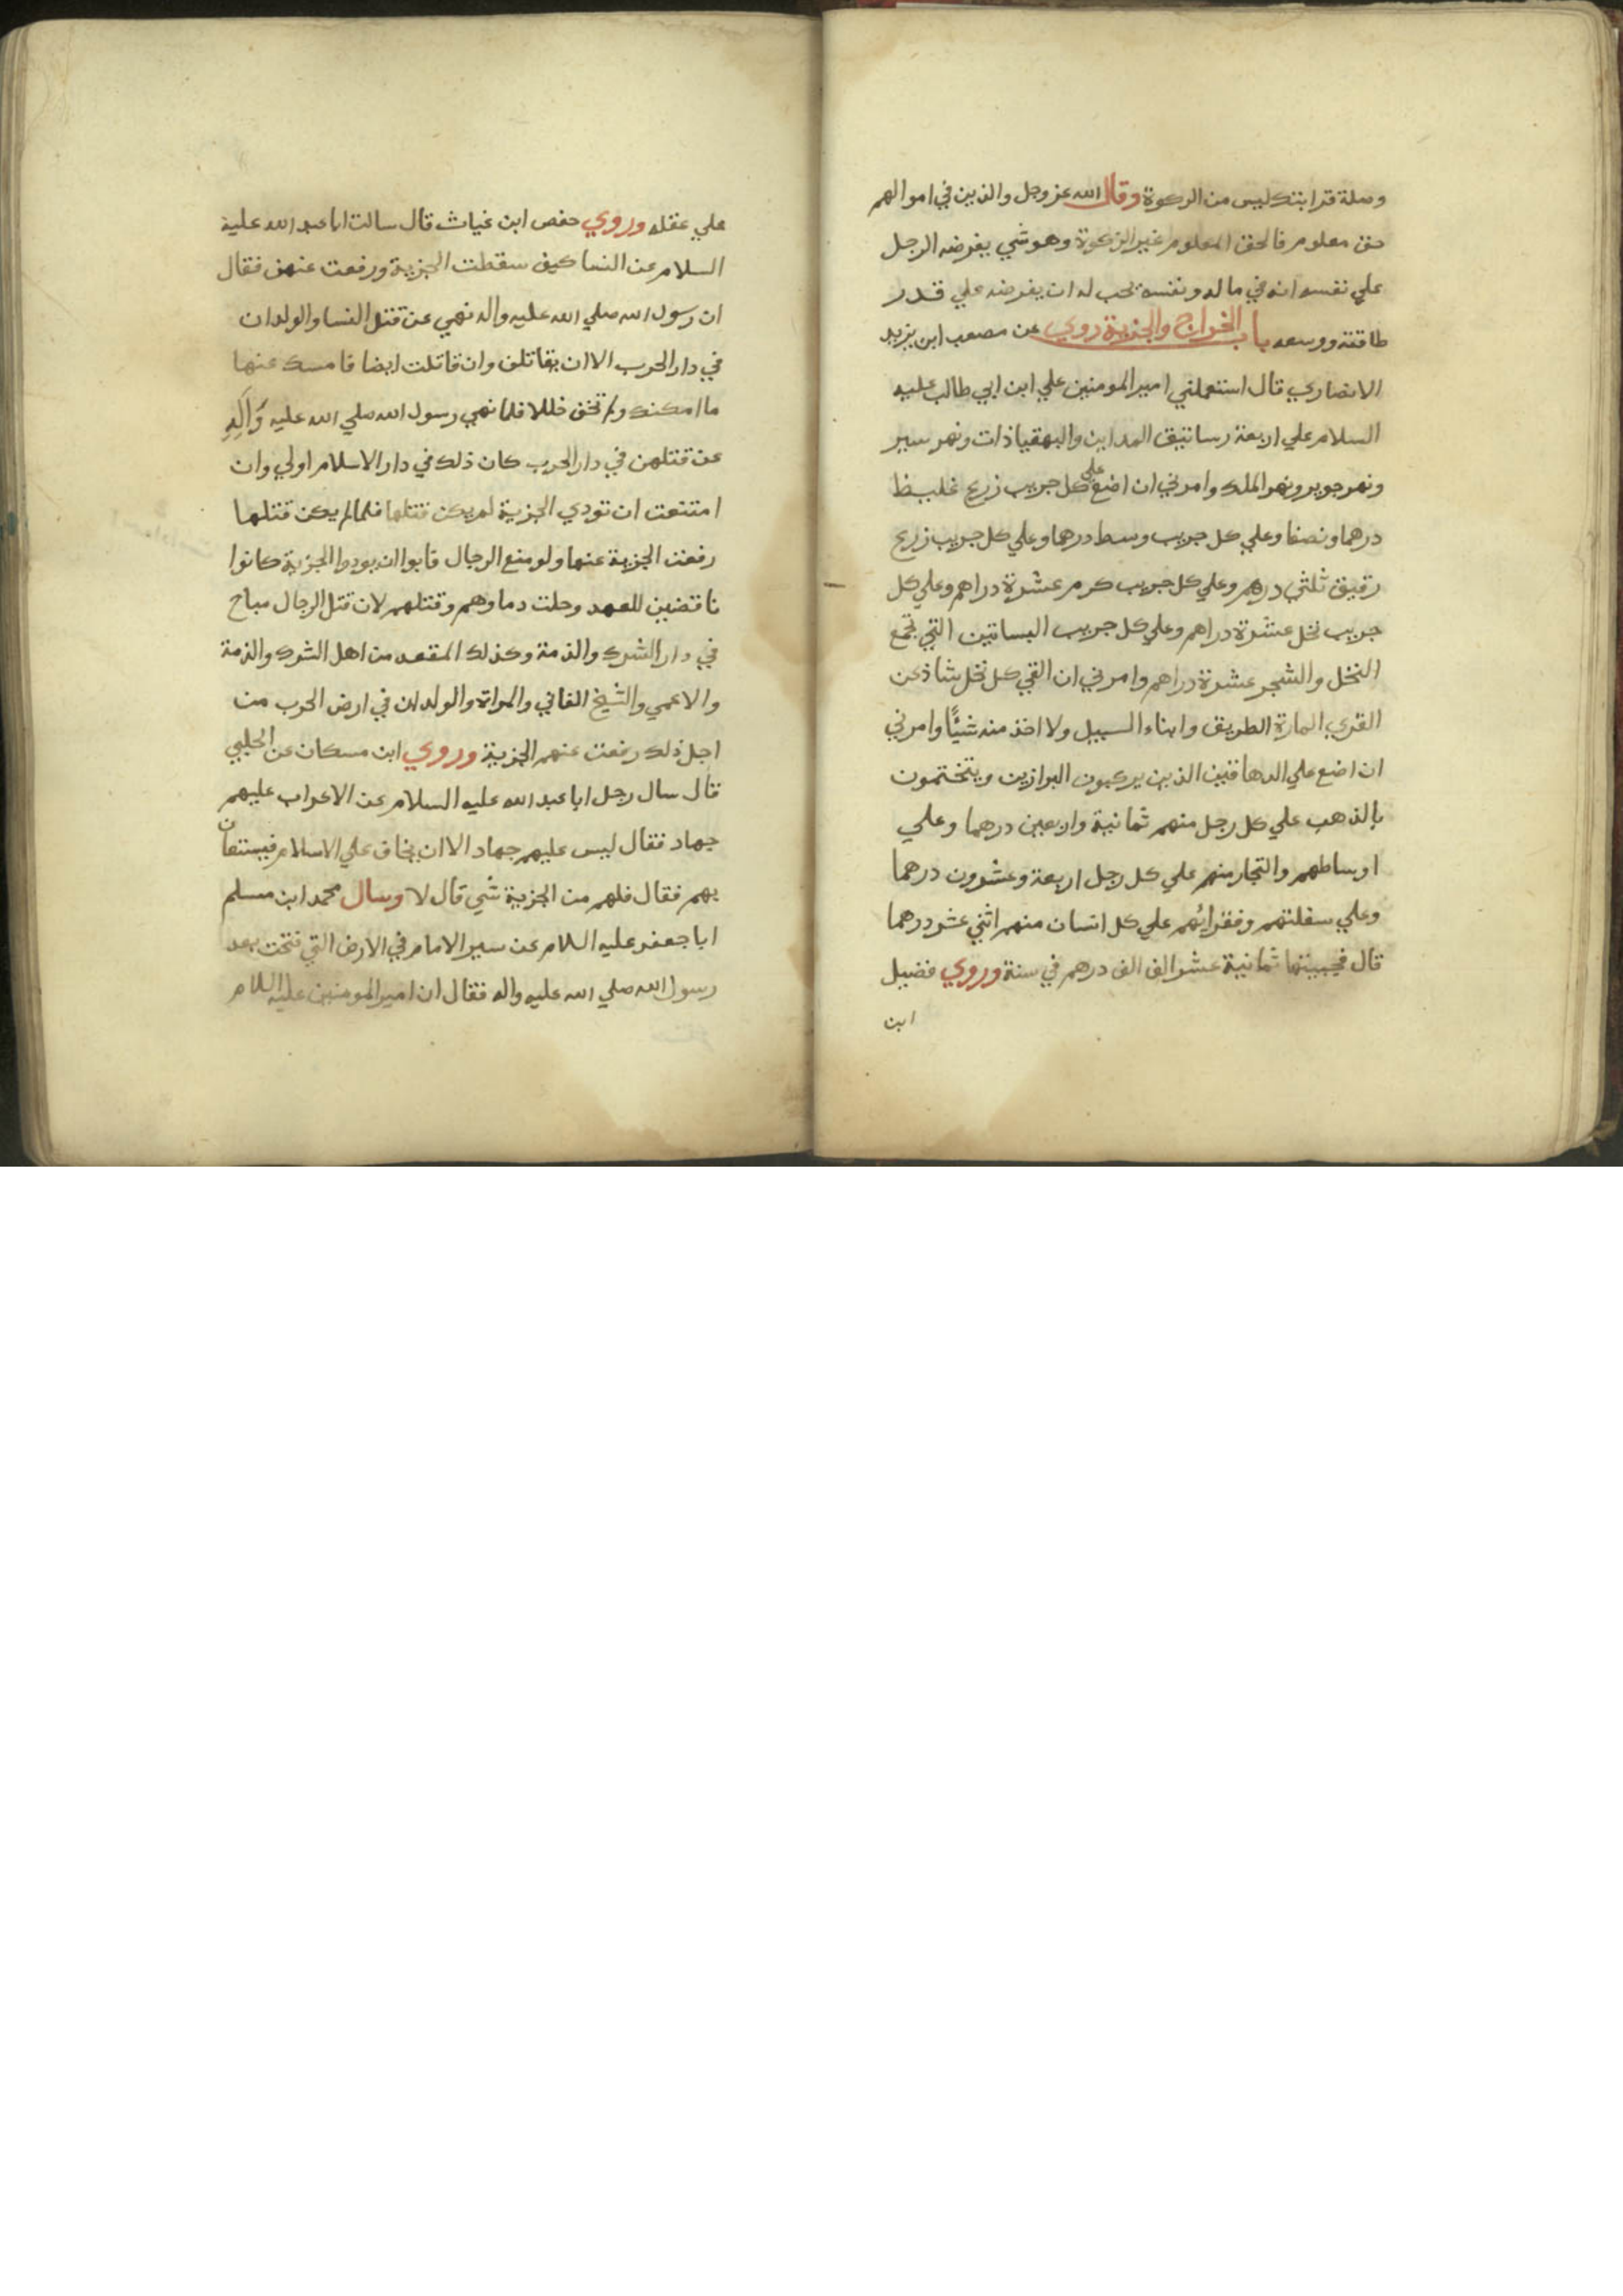 وصلة قرابتك ليس من الزكوة وقال الله عز وجل والذين في اموالهم
حق معلوم فالحق المعلوم غير الزكوة وهو شي يفرضه الرجل
علي نفسه انه في ماله ونفسه يجب له ان يفرضه علي قدر
طاقته ووسعه باب الخراج والجزية روي عن مصعب ابن يزيد
الانصاري قال استعملني امير المومنين علي ابن ابي طالب عليه
السلام علي اربعة رساتيق المداين والبهقياذات ونهر سير
ونهر جوير ونهر الملك وامرني ان اضع علي كل جريب زرع غليظ
درهما ونصفا وعلي كل جريب وسط درهما وعلي كل جريب زرع
رقيق ثلثي درهم وعلي كل جريب كرم عشرة دراهم وعلي كل
جريب نخل عشرة دراهم وعلي كل جريب البساتين التي تجمع
النخل والشجر عشرة دراهم وامرني ان القي كل نخل شاذ عن
القري المارة الطريق وابناء السبيل ولا اخذ منه شيئًا وامرني
ان اضع علي الدهاقين الذين يركبون البرازين ويتختمون
بالذهب علي كل رجل منهم ثمانية واربعين درهما وعلي
اوساطهم والتجار منهم علي كل رجل اربعة وعشرون درهما
وعلي سفلتهم وفقرائهم علي كل انسان منهم اثني عشر درهما
قال فجبيتها ثمانية عشر الف الف درهم في سنة وروي فضيل
ابن
علي عقله وروي حفص ابن غياث قال سالت ابا عبد الله عليه
السلام عن النسا كيف سقطت الجزية ورفعت عنهن فقال
ان رسول الله صلي الله عليه واله نهي عن قتل النسا والولدان
في دار الحرب الا ان يقاتلن وان قاتلت ايضا فامسك عنها
ما امكنك ولم تخف خللا فلما نهي رسول الله صلي الله عليه وَآلِهِ
عن قتلهن في دار الحرب كان ذلك في دار الاسلام اولي وان
امتنعت ان تودي الجزية لم يكن قتلها فلما لم يكن قتلها
رفعت الجزية عنها ولو منع الرجال فابوا ان يودوا الجزية كانوا
ناقضين للعهد وحلت دماوهم وقتلهم لان قتل الرجال مباح
في دار الشرك والذمة وكذلك المقعد من اهل الشرك والذمة
والاعمي والشيخ الفاني والمراة والولدان في ارض الحرب من
اجل ذلك رفعت عنهم الجزية وروي ابن مسكان عن الحلبي
قال سال رجل ابا عبد الله عليه السلام عن الاعراب عليهم
جهاد فقال ليس عليهم جهاد الا ان يخاف علي الاسلام فيستعان
بهم فقال فلهم من الجزية شي قال لا وسال محمد ابن مسلم
ابا جعفر عليه السلام عن سير الامام في الارض التي فتحت بعد
رسول الله صلي الله عليه واله فقال ان امير المومنين عليه السلام